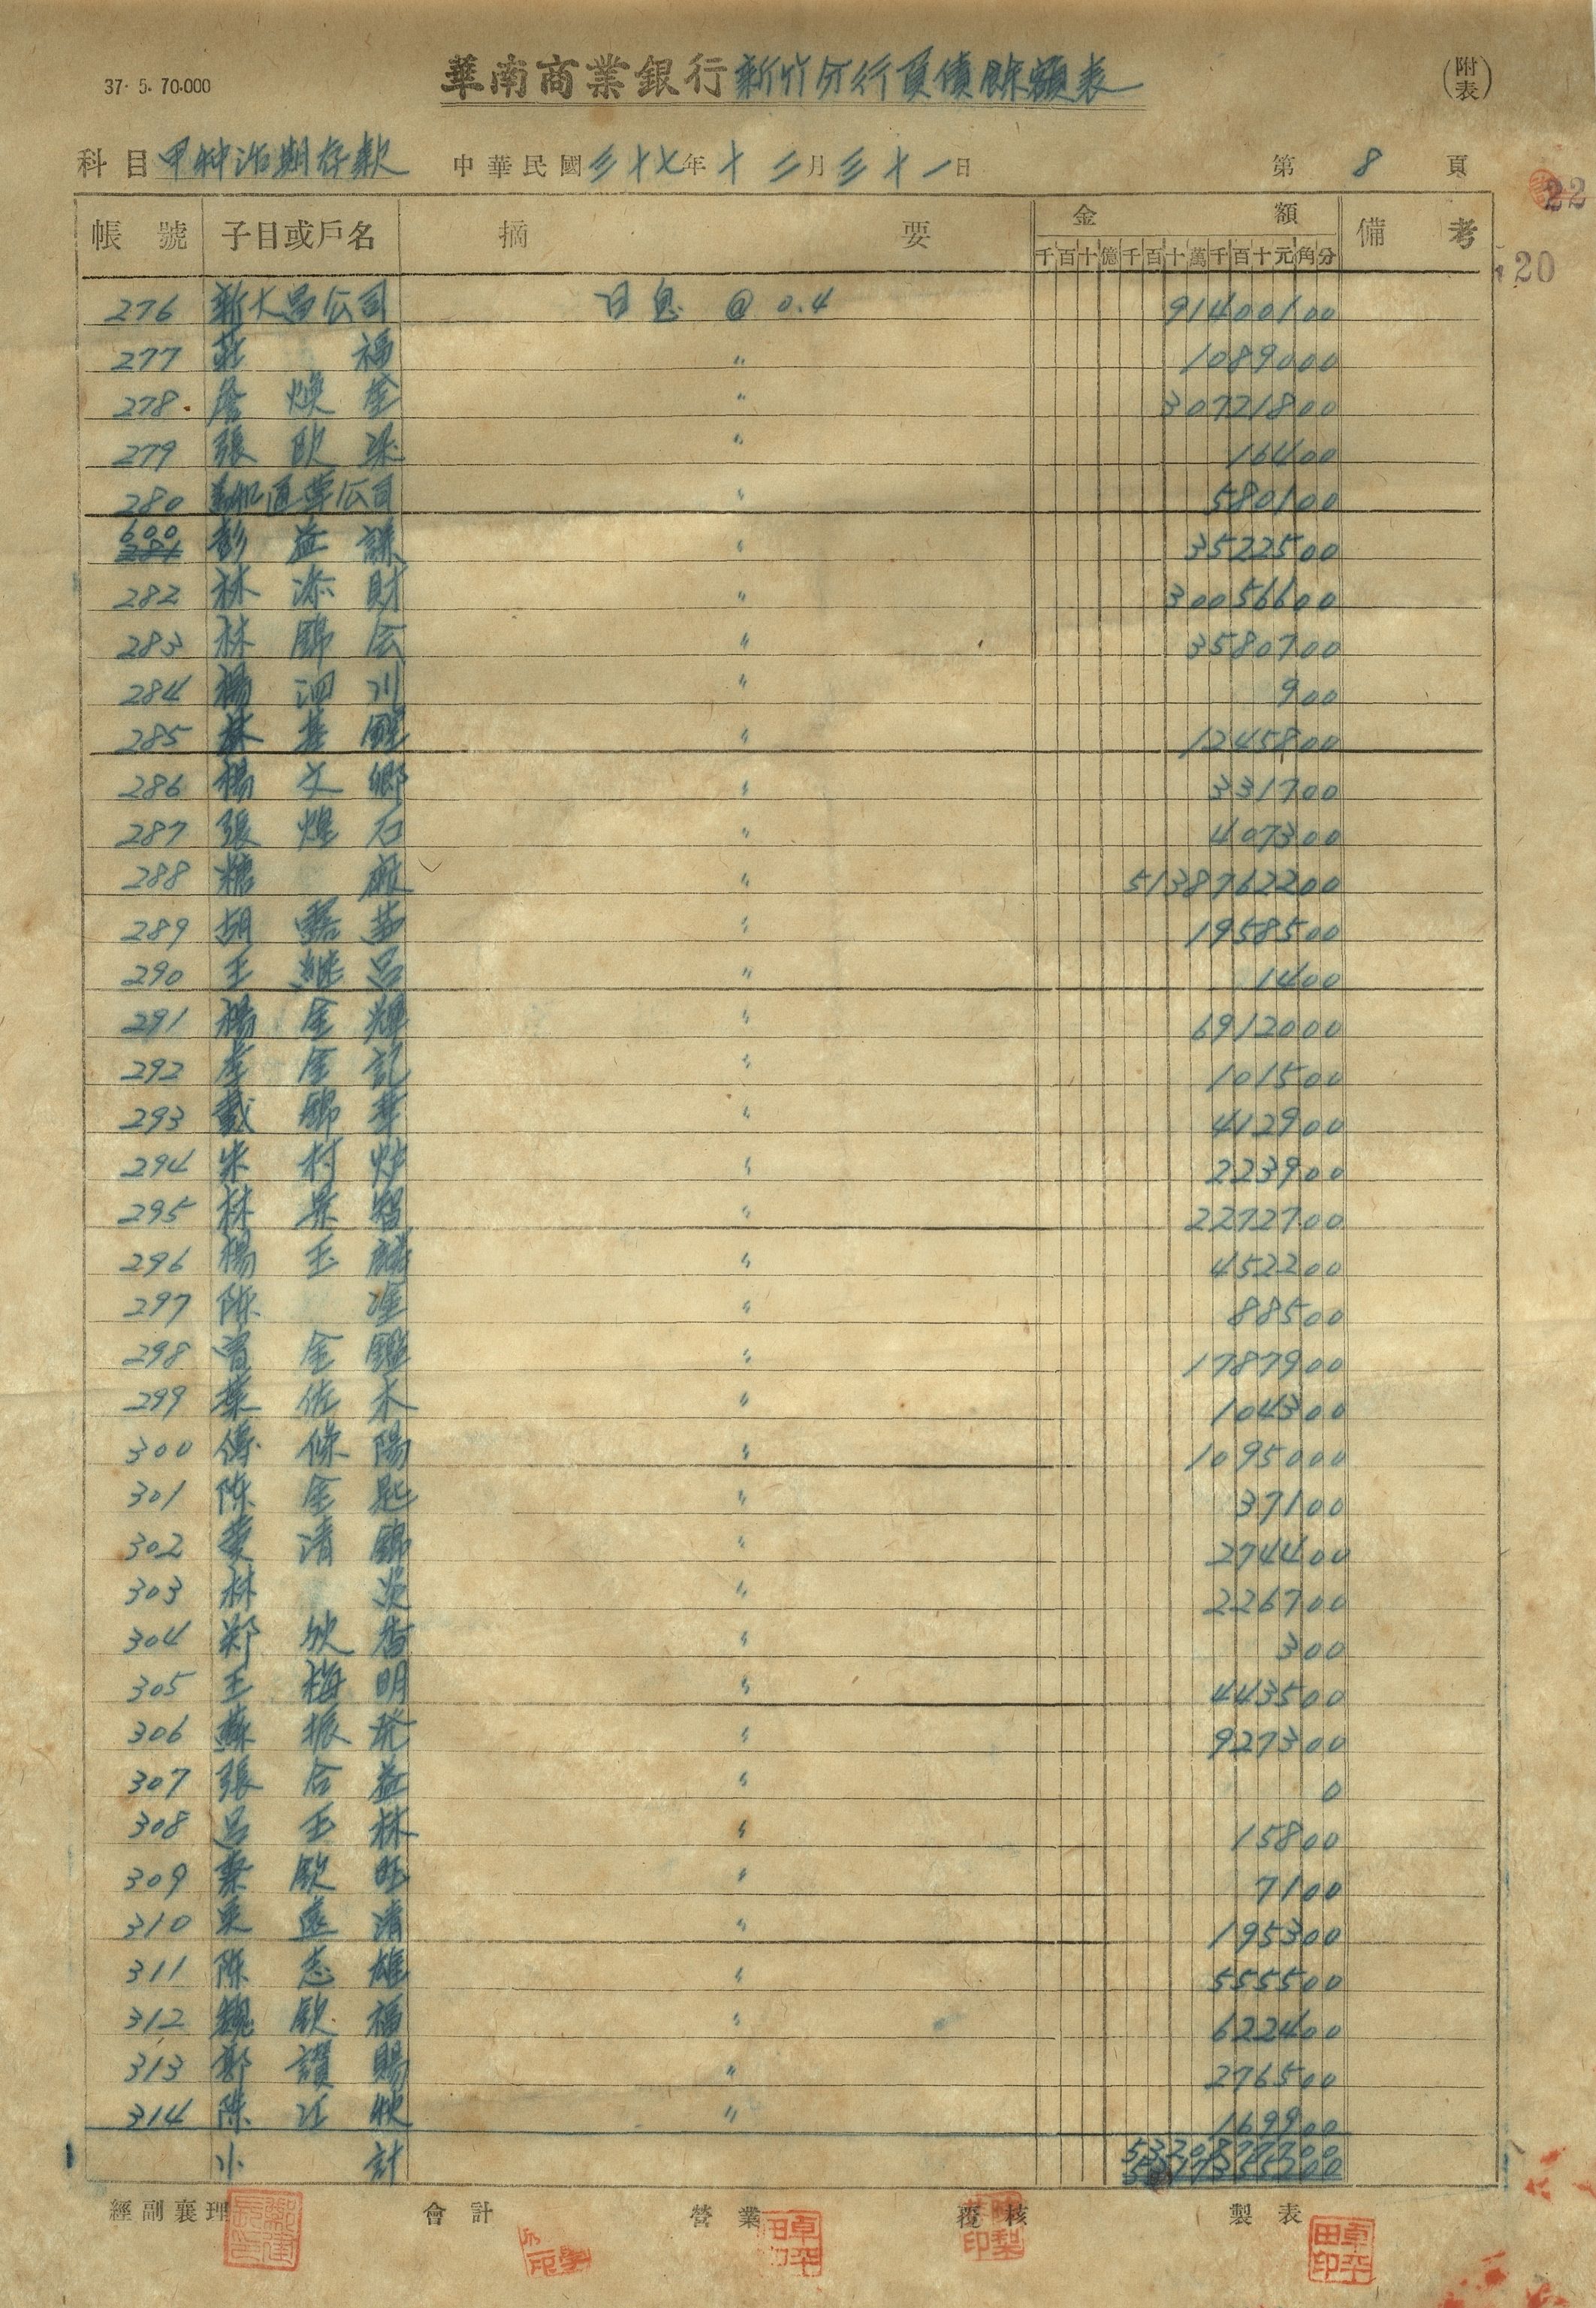 37. 5. 70.000
華南商業銀行新竹分行負債餘額表
(附表)
科目 甲種活期存款 中華民國三十七年十二月三十一日 第 8 頁
22
帳號 子目或戶名 摘要 金額 備考
千百十億千百十萬千百十元角分
20
276 新大昌公司 日息 @ 0.4 91400100
277 莊福 〃 1089000
278 詹煥金 〃 30721800
279 張欽 〃 16400
280 通運公司 〃 580100
600 281 彭益謙 〃 3522500
282 林添財 〃 30056600
283 林錦 〃 3580700
284 楊泗川 〃 900
285 林基 〃 1245800
286 楊文鄉 〃 331700
287 張煌石 〃 407300
288 糖廠 〃 5138762200
289 胡 〃 1958500
290 王継呂 〃 1400
291 楊金輝 〃 6912000
292 李金記 〃 101500
293 戴錦華 〃 412900
294 朱村炉 〃 223900
295 林景智 〃 2272700
296 楊玉麟 〃 452200
297 陳 〃 88500
298 曾金鑑 〃 1787900
299 葉佐木 〃 104300
300 傅條陽 〃 1095000
301 陳金匙 〃 37100
302 清錦 〃 274400
303 林炎 〃 226700
304 鄭欽香 〃 300
305 王梅明 〃 443500
306 蘇振発 〃 927300
307 張合益 〃 0
308 呂玉林 〃 15800
309 欽旺 〃 7100
310 清 〃 195300
311 陳志雄 〃 555500
312 魏欽福 〃 622400
313 鄭讚賜 〃 276500
314 陳江秋 〃 169900
小計
經副襄理 會計 營業 覆核 製表
卓平田印
卓平田印